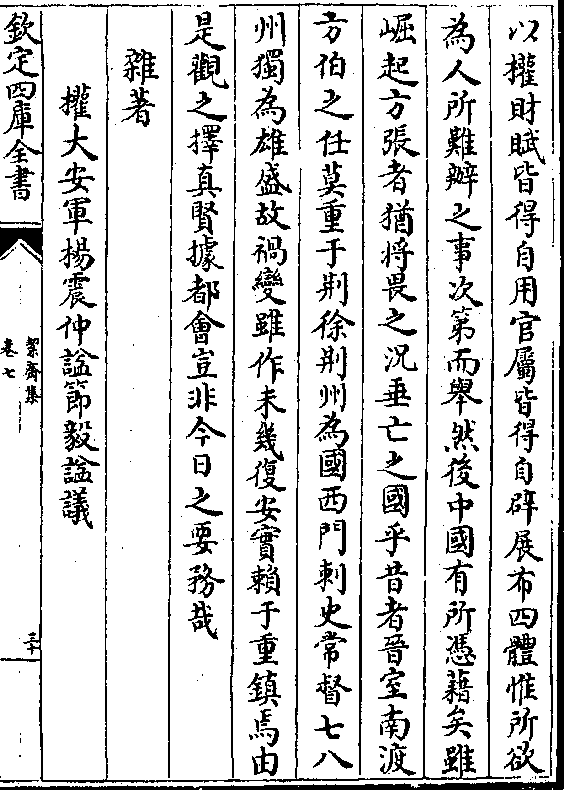 以權財賦皆得自用官屬皆得自辟展布四體惟所欲
為人所難辦之事次第而舉然後中國有所憑藉矣雖
崛起方張者猶將畏之況垂亡之國乎昔者晉室南渡
方伯之任莫重于荆徐荆州為國西門刺史常督七八
州獨為雄盛故禍變雖作未幾復安實賴于重鎮焉由
是觀之擇真賢據都會豈非今日之要務哉
雜著
權大安軍揚震仲諡節毅諡議
欽定四庫全書
絜齋集
卷七
三十